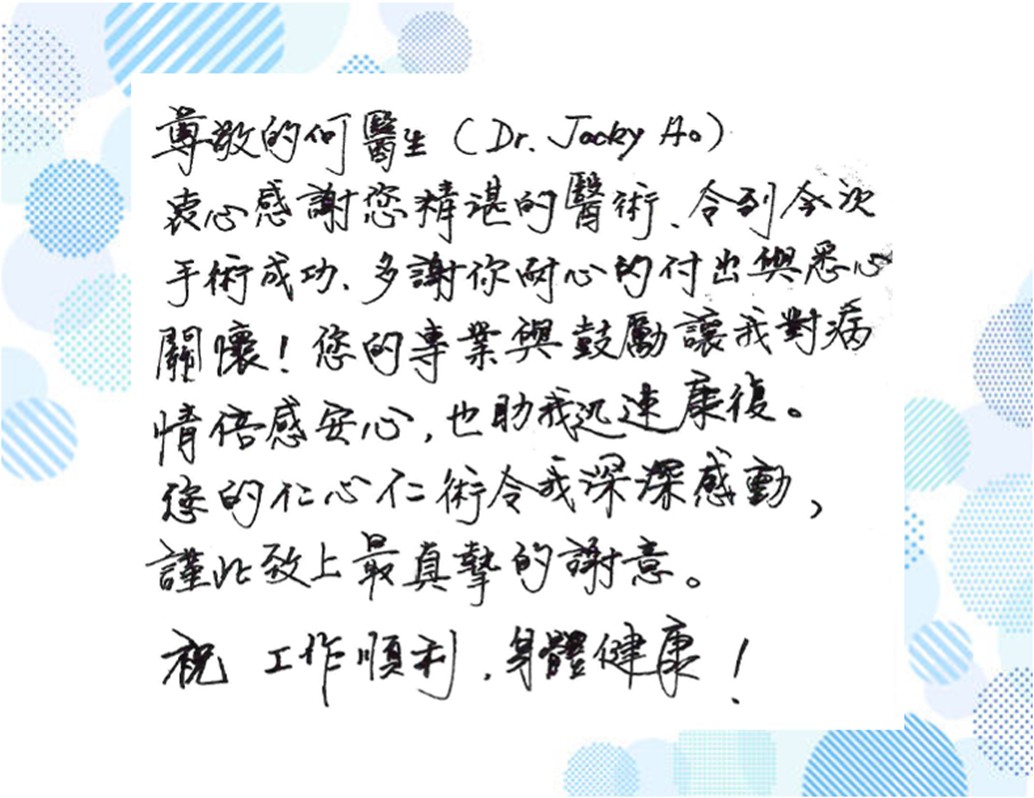 尊敬的何醫生（Dr. Jacky Ho）
衷心感謝您精湛的醫術、令到今次
手術成功、多謝你耐心的付出與悉心
關懷！您的專業與鼓勵讓我對病
情倍感安心，也助我迅速康復。
您的仁心仁術令我深深感動，
謹此致上最真摯的謝意。
祝 工作順利，身體健康！